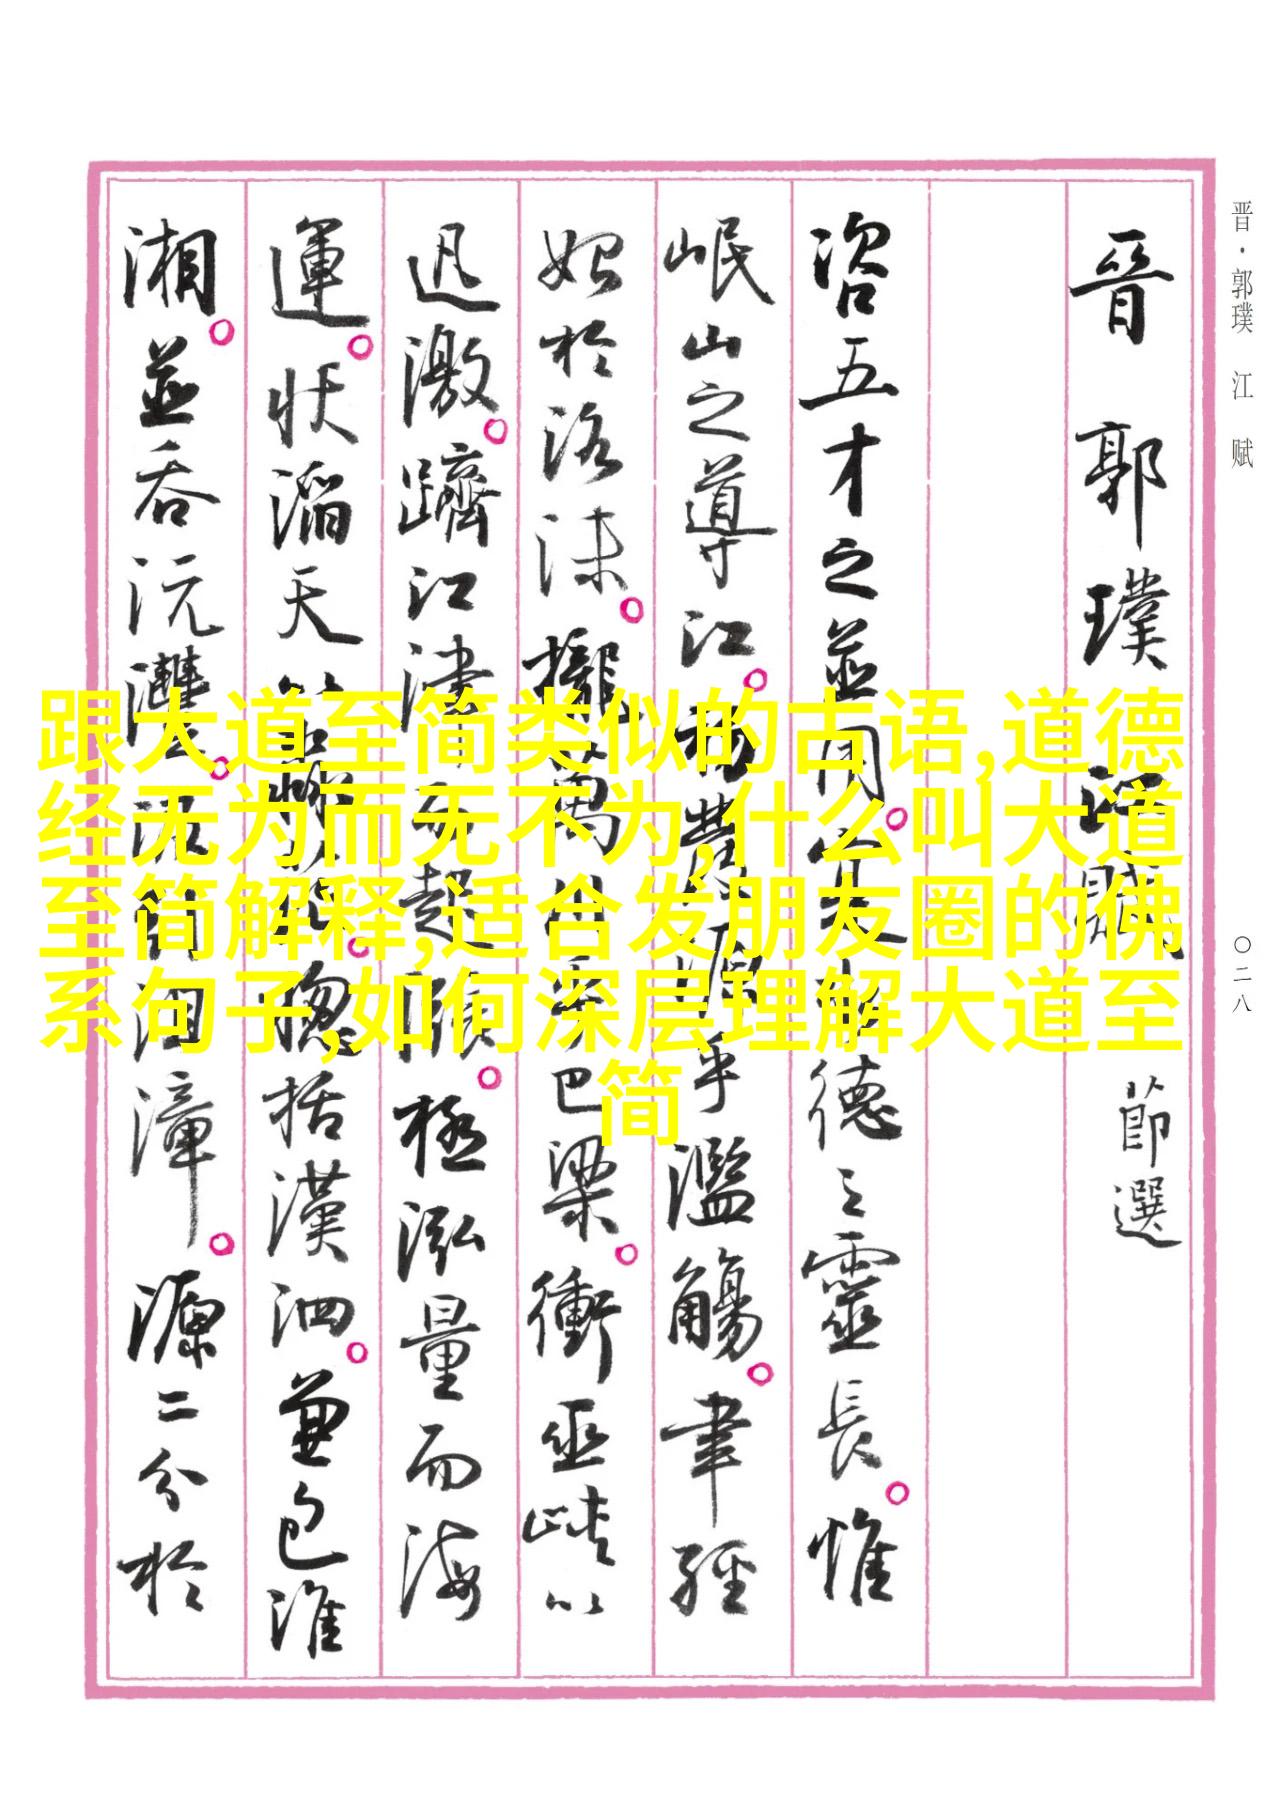 晋·郭璞 江 赋
〇二八
晉 郭璞 江賦 節選
咨五才之並用。寔水德之靈長。惟
岷山之導江。初發源乎濫觴。聿經
始於洛沬。攏萬川乎巴梁。衝巫峽以
迅激。躋江津而起漲。極泓量而海
運。狀滔天以淼茫。總括漢泗。兼包淮
湘。並吞沅灃。汲引沮漳。源二分於
跟大道至简类似的古语,道德
经无为而无不为,什么叫大道
至简解释,适合发朋友圈的佛
系句子,如何深层理解大道至
简